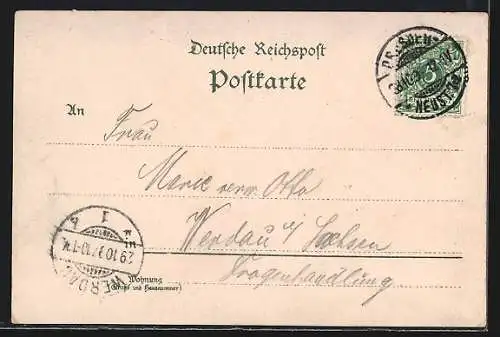 Deutsche Reichspost
Postkarte
An
Frau
Marie verw. Otto
in Werdau i/ Sachsen
Drogenhandlung
Wohnung
(Straße und Hausnummer)
DRESDEN
NEUSTADT
3
WERDAU
29.10.97.10-11V.